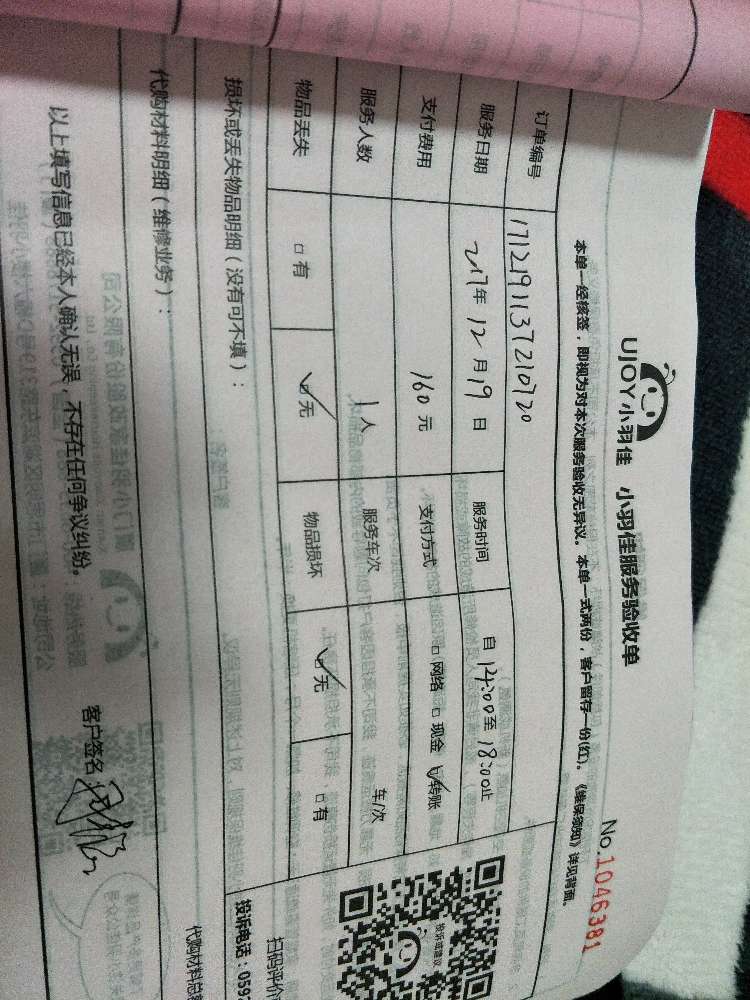 UJOY小羽佳 小羽佳服务验收单
No.1046381
本单一经核签，即视为对本次服务验收无异议。本单一式两份，客户留存一份(红)。《维保须知》详见背面。
订单编号 1712191137210720
服务日期 217年12月19日 服务时间 自14:00至18:00止
支付费用 160元 支付方式 □网络 □现金 ☑转账
服务人数 1人 服务车次 车/次
物品丢失 □有 ☑无 物品损坏 ☑无 □有
损坏或丢失物品明细（没有可不填）：
代购材料明细（维修业务）：
以上填写信息已经本人确认无误，不存在任何争议纠纷。
客户签名
投诉或建议
扫码评价
投诉电话：059
代购材料总